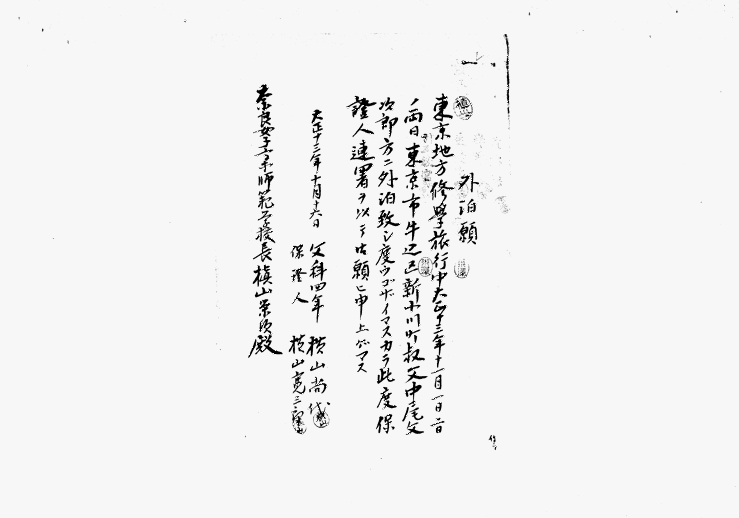 外泊願
東京地方修學旅行中大正十三年十一月一日二日
ノ両日東京市牛込区新小川町叔父中尾文
次郎方ニ外泊致シ度ウゴザイマスカラ此度保
證人連署ヲ以テ御願ヒ申上ゲマス
大正十三年十月十六日
文科四年 横山尚代
保證人 横山寛三郎
奈良女子高等師範学校長槇山栄次殿